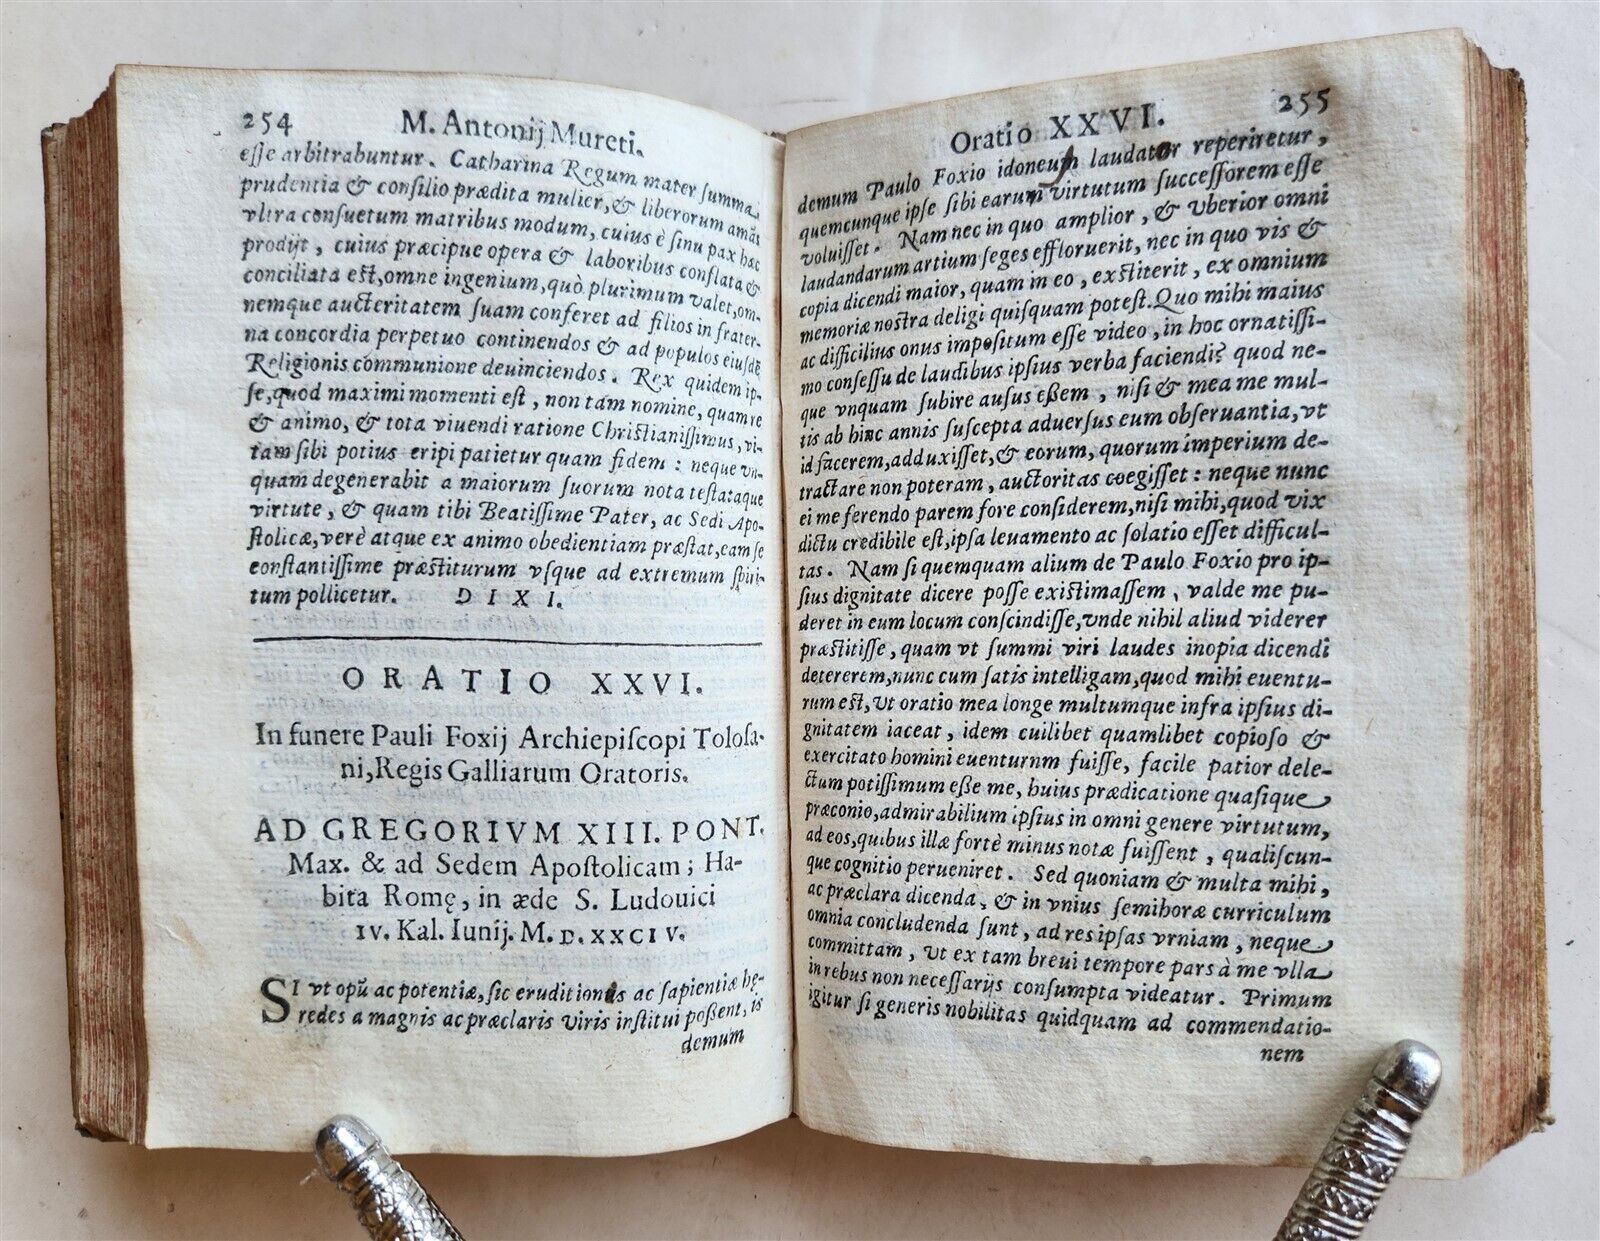 254 M. Antonij Mureti.
esse arbitrabuntur. Catharina Regum mater summa
prudentia & consilio prædita mulier, & liberorum amãs
vltra consuetum matribus modum, cuius è sinu pax hæc
prodijt, cuius præcipue opera & laboribus conflata &
conciliata est, omne ingenium, quò plurimum valet, om-
nemque aucteritatem suam conferet ad filios in frater-
na concordia perpetuo continendos & ad populos eiusdẽ
Religionis communione deuinciendos. Rex quidem ip-
se, quod maximi momenti est, non tam nomine, quam re
& animo, & tota viuendi ratione Christianissimus, vi-
tam sibi potius eripi patietur quam fidem: neque vn-
quam degenerabit a maiorum suorum nota testataque
virtute, & quam tibi Beatissime Pater, ac Sedi Apo-
stolicæ, verè atque ex animo obedientiam præstat, eam se
constantissime præstiturum vsque ad extremum spiri-
tum pollicetur. DIXI.
ORATIO XXVI.
In funere Pauli Foxij Archiepiscopi Tolosa-
ni, Regis Galliarum Oratoris.
AD GREGORIVM XIII. PONT.
Max. & ad Sedem Apostolicam; Ha-
bita Romę, in æde S. Ludouici
IV. Kal. Iunij. M.D.XXCIV.
SI vt opũ ac potentiæ, sic eruditionis ac sapientiæ hę-
redes a magnis ac præclaris viris institui possent, is
demum
Oratio XXVI. 255
demum Paulo Foxio idoneum laudator reperiretur,
quemcunque ipse sibi earum virtutum successorem esse
voluisset. Nam nec in quo amplior, & vberior omni
laudandarum artium seges effloruerit, nec in quo vis &
copia dicendi maior, quam in eo, exstiterit, ex omnium
memoriæ nostra deligi quisquam potest. Quo mihi maius
ac difficilius onus impositum esse video, in hoc ornatissi-
mo consessu de laudibus ipsius verba faciendi? quod ne-
que vnquam subire ausus essem, nisi & mea me mul-
tis ab hinc annis suscepta aduersus eum obseruantia, vt
id facerem, adduxisset, & eorum, quorum imperium de-
tractare non poteram, auctoritas coegisset: neque nunc
ei me ferendo parem fore considerem, nisi mihi, quod vix
dictu credibile est, ipsa leuamento ac solatio esset difficul-
tas. Nam si quemquam alium de Paulo Foxio pro ip-
sius dignitate dicere posse existimassem, valde me pu-
deret in eum locum conscindisse, vnde nihil aliud viderer
præstitisse, quam vt summi viri laudes inopia dicendi
detererem, nunc cum satis intelligam, quod mihi euentu-
rum est, vt oratio mea longe multumque infra ipsius di-
gnitatem iaceat, idem cuilibet quamlibet copioso &
exercitato homini euenturnm fuisse, facile patior dele-
ctum potissimum esse me, huius prædicatione quasique
præconio, admirabilium ipsius in omni genere virtutum,
ad eos, quibus illæ fortè minus notæ fuissent, qualiscun-
que cognitio perueniret. Sed quoniam & multa mihi,
ac præclara dicenda, & in vnius semihoræ curriculum
omnia concludenda sunt, ad res ipsas vrniam, neque
committam, vt ex tam breui tempore pars à me vlla
in rebus non necessarijs consumpta videatur. Primum
igitur si generis nobilitas quidquam ad commendatio-
nem